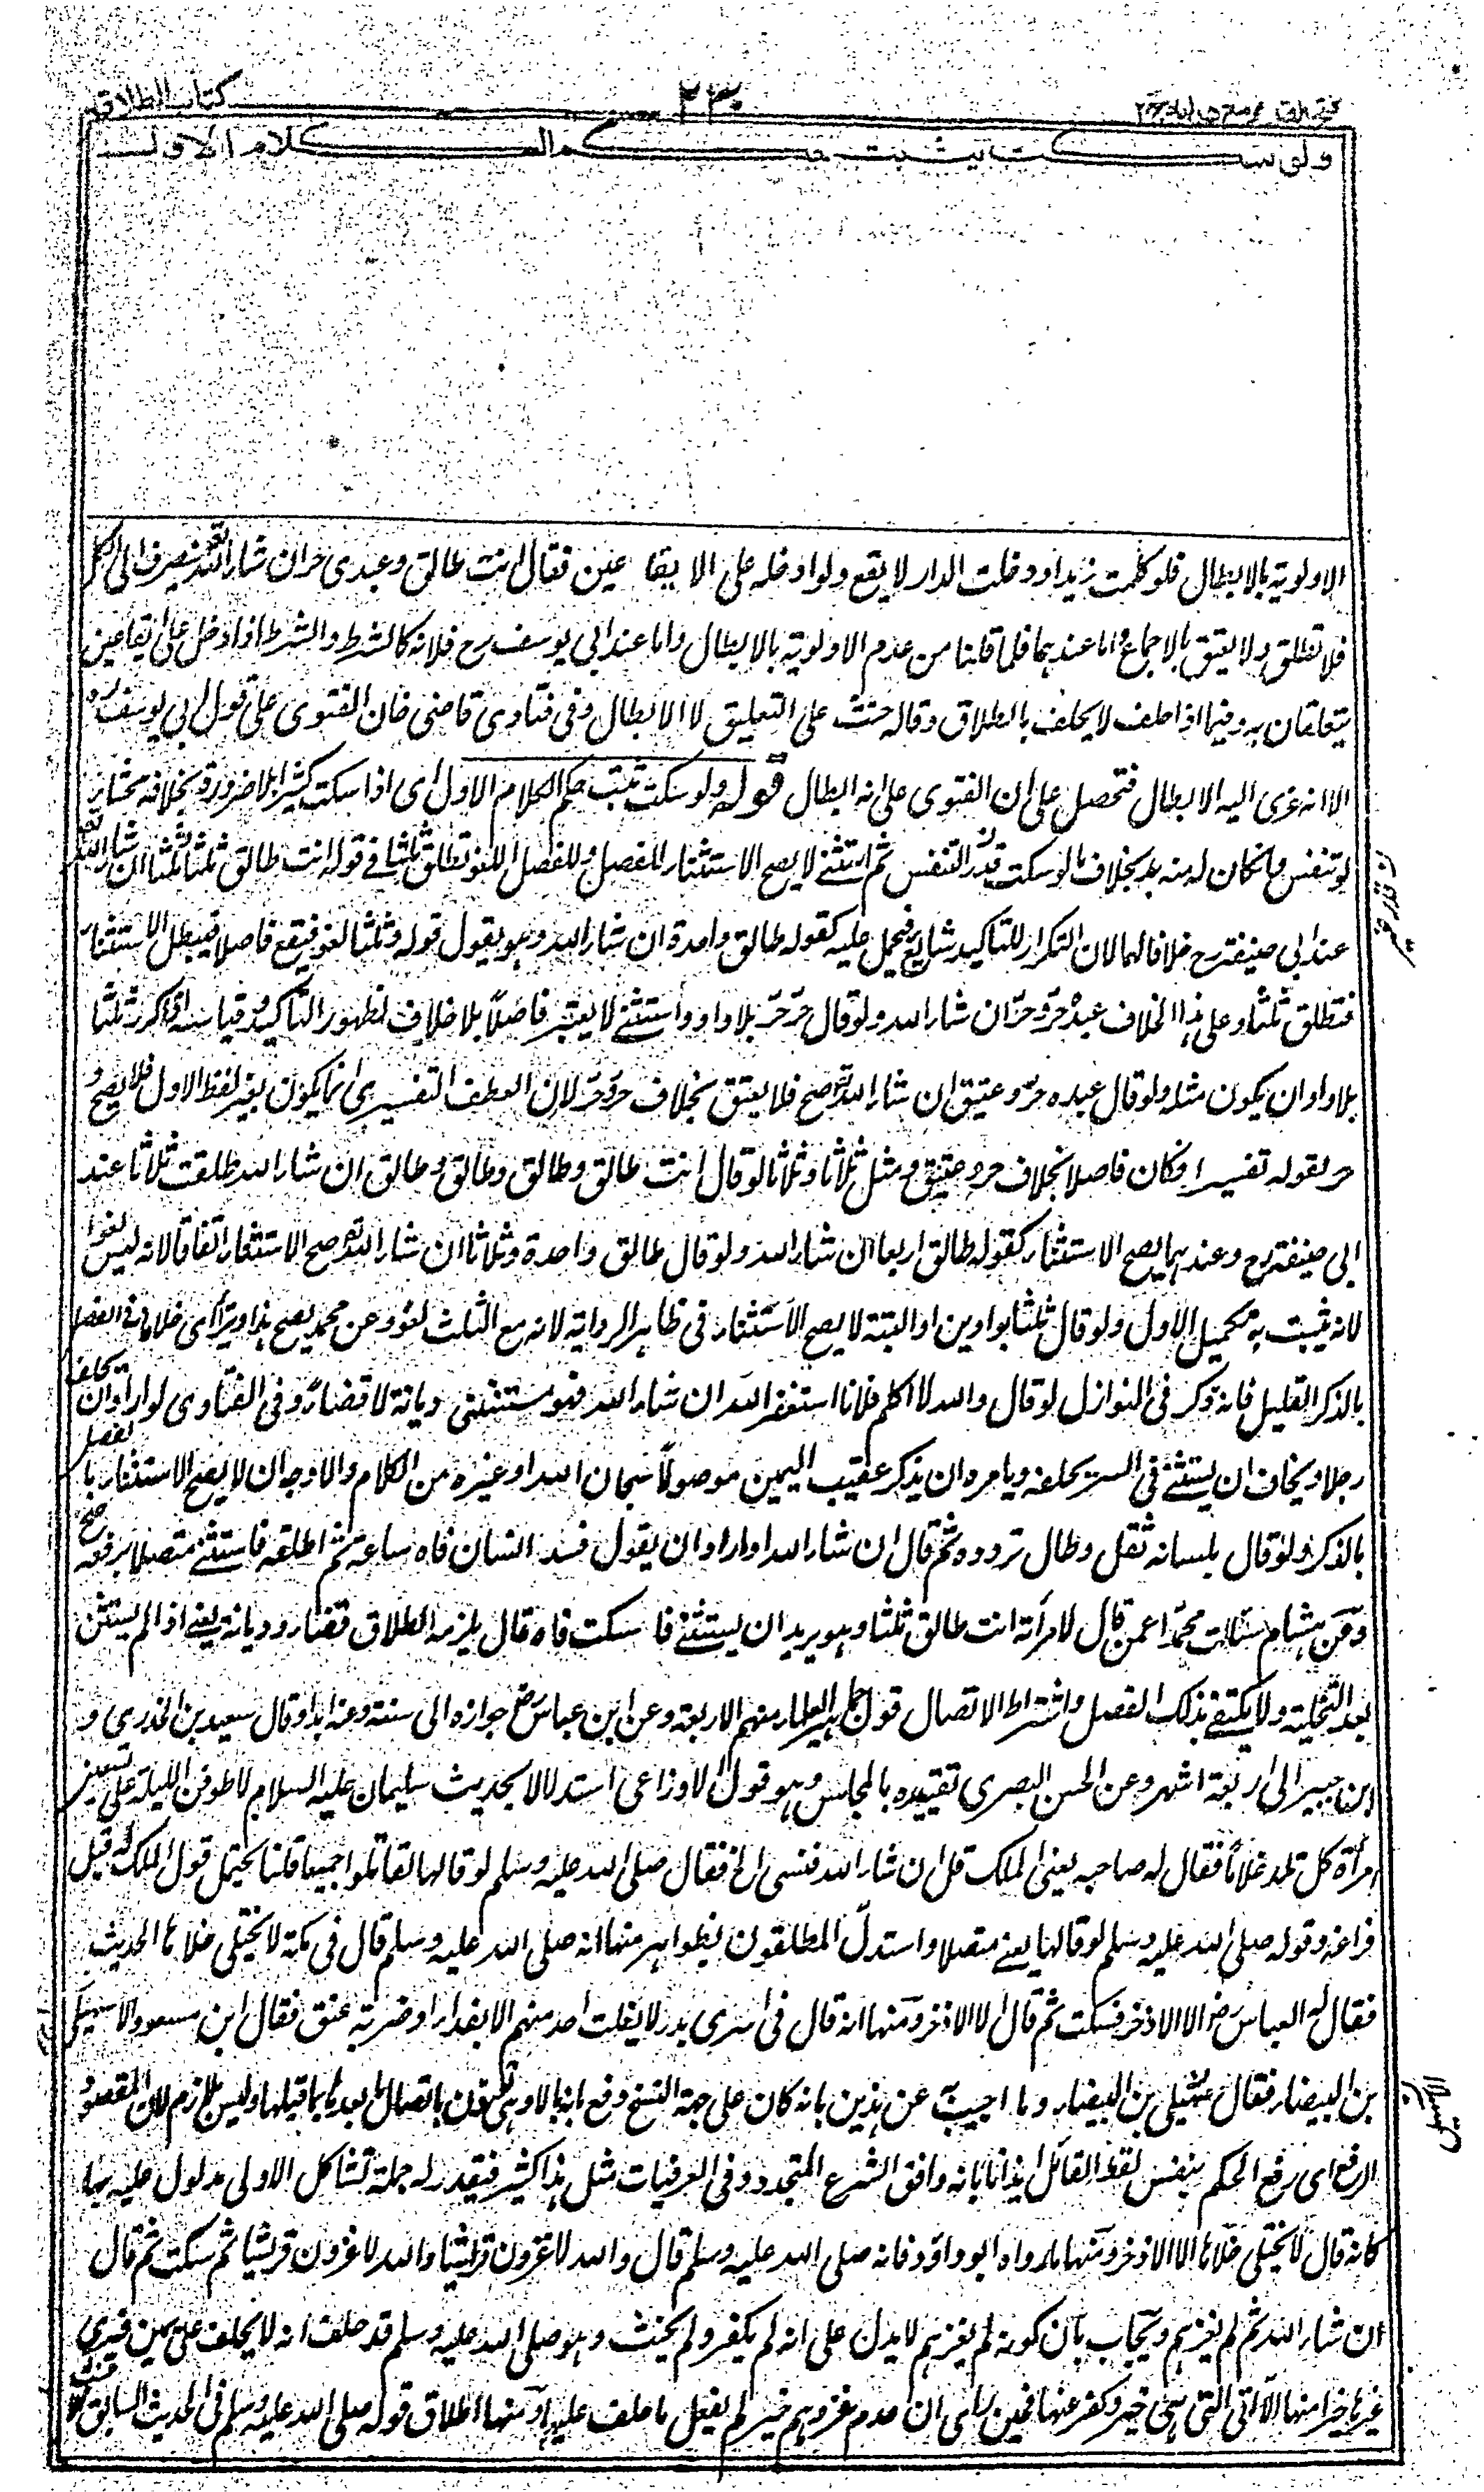 كتاب الطلاق
٢٣٠
ولو سكت يثبت حكم الكلام الاول
الاولوية بالابطال فلو كلمت زيدا ودخلت الدار لا يقع ولو ادخله على الايقاعين فقال انت طالق وعبدى حر ان شاء الله تعالى ينصرف الى الكل
فلا تطلق ولا يعتق بالاجماع واما عندهما فلما قلنا من عدم الاولوية بالابطال واما عند ابى يوسف رح فلانه كالشرط والشرط اذا دخل على ايقاعين
يتعلقان به وفيما اذا حلف لا يحلف بالطلاق وقاله حنث على التعليق لا الابطال وفى فتاوى قاضى خان الفتوى على قول ابى يوسف رح
الا انه عزى اليه الابطال فتحصل على ان الفتوى على انه ابطال قوله ولو سكت ثبت حكم الكلام الاول اى اذا سكت كثيرا بلا ضرورة بخلافه بجشاء
لو تنفس وان كان له منه بد بخلاف ما لو سكت قدر التنفس ثم استثنى لا يصح الاستثناء للفصل وللفصل اللغو تطلق ثلثا فى قوله انت طالق ثلثا وثلثا ان شاء الله
عند ابى حنيفة رح خلافا لهما لان التكرار للتاكيد شايع فيحمل عليه كقوله طالق واحدة ان شاء الله وهو يقول قوله وثلثا لغو فيقع فاصلا فيبطل الاستثناء
فتطلق ثلثا وعلى هذا الخلاف عبده حر وحر ان شاء الله ولو قال حر حر بلا واو واستثنى لا يعتبر فاصلا بلا خلاف لظهور التاكيد وقياسه اذا كرر ثلثا
بلا واو ان يكون مثله ولو قال عبده حر وعتيق ان شاء الله تعالى صح فلا يعتق بخلاف حر وحر لان العطف التفسيرى انما يكون بغير لفظ الاول فلا يصح و
حر لقوله تفسيرا فكان فاصلا بخلاف حر وعتيق ومثل ثلاثا وثلاثا لو قال انت طالق وطالق وطالق وطالق ان شاء الله طلقت ثلاثا عند
ابى حنيفة رح وعندهما يصح الاستثناء كقوله طالق اربعا ان شاء الله ولو قال طالق واحدة وثلاثا ان شاء الله صح الاستثناء اتفاقا لانه ليس لغوا
لانه يثبت به تكميل الاول ولو قال ثلثا بوائن او البتة لا يصح الاستثناء فى ظاهر الرواية لانه مع الثلث لغو وعن محمد يصح هذا وتراءى خلاف فى الفصل
بالذكر القليل فانه ذكر فى النوازل لو قال والله لا اكلم فلانا استغفر الله ان شاء الله فهو مستثنى ديانة لا قضاء وفى الفتاوى لو اراد ان يحلف
رجلا ويخاف ان يستثنى فى السر يحلفه ويامره ان يذكر عقيب اليمين موصولا سبحان الله او غيره من الكلام والاوجه ان لا يصح الاستثناء بالفصل
بالذكر ولو قال بلسانه ثقل وطال تردده ثم قال ان شاء الله او اراد ان يقول فسد انسان فاه ساعة ثم اطلقه فاستثنى متصلا برفعه صح
وعن هشام سئلت محمدا عمن قال لامرأته انت طالق ثلثا وهو يريد ان يستثنى فامسكت فاه قال يلزمه الطلاق قضاء وديانة يعنى اذا لم يستثن
بعد التخلية ولا يكتفى بذلك الفصل واشتراط الاتصال قول جماهير العلماء منهم الاربعة وعن ابن عباس رض جوازه الى سنة وعنه ابدا وقال سعيد بن الخدرى و
ابن جبير الى اربعة اشهر وعن الحسن البصرى تقييده بالمجلس وهو قول الاوزاعى استدلالا بحديث سليمان عليه السلام لاطوفن الليلة على تسعين
امرأة كل تلد غلاما فقال له صاحبه يعنى الملك قل ان شاء الله فنسى الخ فقال صلى الله عليه وسلم لو قالها لقاتلوا جميعا قلنا يحتمل قول الملك له قبل
فراغه وقوله صلى الله عليه وسلم لو قالها يعنى متصلا واستدل المطلقون بظواهر منها انه صلى الله عليه وسلم قال فى مكة لا يختلى خلاها الحديث
فقال له العباس رض الا الاذخر فسكت ثم قال الا الاذخر ومنها انه قال فى اسرى بدر لا يفلت احد منهم الا بفداء او ضربة عنق فقال ابن مسعود الا سهيل
بن البيضاء فقال الا سهيل بن البيضاء وما اجيب عن هذين بانه كان على جهة النسخ دفع بانه بالا وهى تؤذن باتصال ما بعدها بما قبلها وليس بلازم لان المقصود
الرفع اى رفع الحكم بنفس لفظ القائل ايذانا بانه وافق الشرع المتجدد وفى العرفيات مثل هذا كثير فيقدر له جملة تشاكل الاولى مدلول عليه بها
كانه قال لا يختلى خلاها الا الاذخر ومنها ما رواه ابو داود فانه صلى الله عليه وسلم قال والله لاغزون قريشا والله لاغزون قريشا ثم سكت ثم قال
ان شاء الله ثم لم يغزهم ويجاب بان كونه لم يغزهم لا يدل على انه لم يكفر ولم يحنث وهو صلى الله عليه وسلم قد حلف انه لا يحلف على يمين فيرى
غيرها خيرا منها الا اتى التى هى خير وكفر عنها فحين راى ان عدم غزوهم خير لم يفعل ما حلف عليه ومنها اطلاق قوله صلى الله عليه وسلم فى الحديث السابق